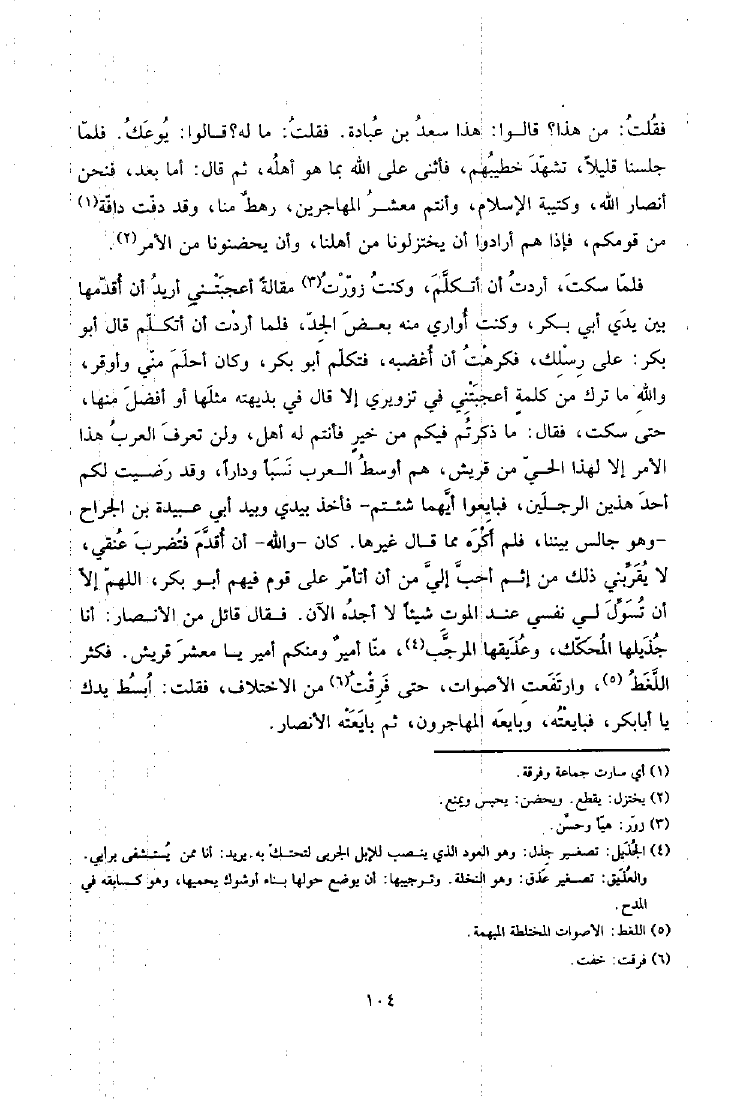 فقُلتُ: من هذا؟ قالـوا: هذا سعدُ بن عُبادة. فقلتُ: ما له؟ قـالوا: يُوعَكُ. فلمّا
جلسنا قليلاً، تشهّدَ خطيبُهم، فأثنى على الله بما هو أهلُه، ثم قال: أما بعد، فنحن
أنصار الله، وكتيبة الإسلام، وأنتم معشـرُ المهاجرين، رهطٌ منا، وقد دفّت دافّة(١)
من قومكم، فإذا هم أرادوا أن يختزلونا من أهلنا، وأن يحضنونا من الأمر(٢).
فلمّا سكتَ، أردتُ أن أتـكلَّمَ، وكنتُ زوّرْتُ(٣) مقالةً أعجبَتْـني أريدُ أن أُقدّمها
بين يدَي أبي بـكر، وكنت أُواري منه بعـضَ الجِدّ، فلما أردْت أن أتكـلّم قال أبو
بكر: على رِسْلِك، فكرهْتُ أن أُغضبه، فتكلّم أبو بكر، وكان أحلَمَ منّي وأوقر،
واللهِ ما ترك من كلمةٍ أعجبَتْنِي في تزويري إلا قال في بذيهته مثلَها أو أفضلَ منها،
حتى سكت، فقال: ما ذكرتُم فيكم من خيرٍ فأنتم له أهل، ولن تعرفَ العربُ هذا
الأمر إلا لهذا الحيّ من قريش، هم أوسطُ الـعرب نَسَباً وداراً، وقد رَضـيت لكم
أحدَ هذين الرجـلَين، فبايِعوا أيَّهما شئـتم- فأخذ بيدي وبيد أبي عـبيدة بن الجراح
-وهو جالس بيننا، فلم أَكْرَه مما قـال غيرها. كان -والله- أن أُقدَّمَ فتُضربَ عنقي،
لا يُقَرّبُني ذلك من إثـم أحبَّ إليَّ من أن أتأمّر على قوم فيهم أبـو بكر، اللهمّ إلاّ
أن تُسَوِّلَ لـي نفسي عنـد الموتِ شيئاً لا أجدُه الآن. فـقال قائل من الأنـصار: أنا
جُذَيلها المُحَكّك، وعُذَيقها المرجَّب(٤)، منّا أميرٌ ومنكم أمير يـا معشرَ قريش. فكثر
اللَّغَطُ(٥)، وارتفَعت الأصوات، حتى فَرِقْتُ(٦) من الاختلاف، فقلت: أبسُط يدك
يا أبابكر، فبايعْتُه، وبايعَه المهاجرون، ثم بايَعَتْه الأنصار.
(١) أي سارت جماعة وفرقة.
(٢) يختزل: يقطع. ويحضن: يحبس ويمنع.
(٣) زوّر: هيّأ وحسَّن.
(٤) الجُذَيل: تصغـير جذل: وهو العود الذي ينـصب للإبل الجربى لتحتـكّ به. يريد: أنا ممن يُستـشفى برأيي.
والعُذَيق: تصغـير عَذق: وهو النخلة. وتـرجيبها: أن يوضع حولها بـناء أوشوك يحميها، وهو كـسابقه في
المدح.
(٥) اللغط: الأصوات المختلطة المبهمة.
(٦) فرقت: خفت.
١٠٤